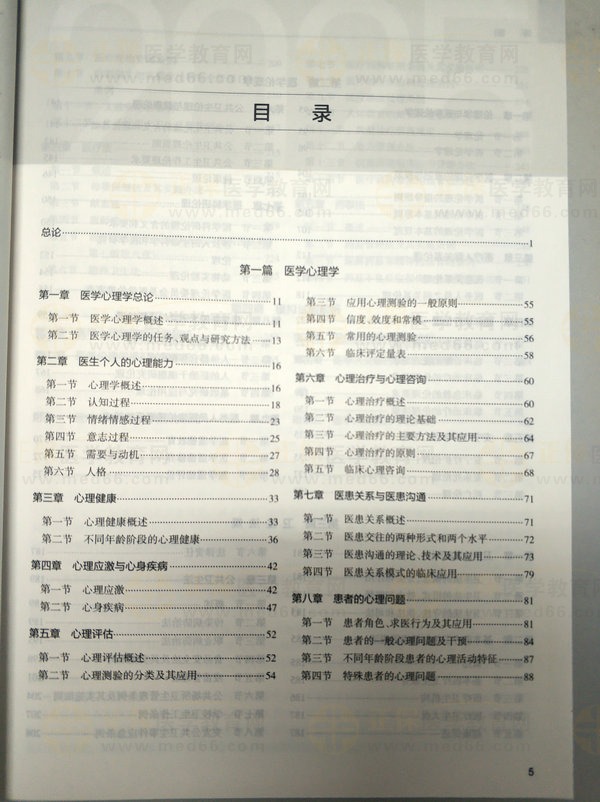 医学教育网
www.med66.com
目 录
总论 1
第一篇 医学心理学
第一章 医学心理学总论 11
第一节 医学心理学概述 11
第二节 医学心理学的任务、观点与研究方法 13
第二章 医生个人的心理能力 16
第一节 心理学概述 16
第二节 认知过程 18
第三节 情绪情感过程 23
第四节 意志过程 25
第五节 需要与动机 27
第六节 人格 28
第三章 心理健康 33
第一节 心理健康概述 33
第二节 不同年龄阶段的心理健康 36
第四章 心理应激与心身疾病 42
第一节 心理应激 42
第二节 心身疾病 47
第五章 心理评估 52
第一节 心理评估概述 52
第二节 心理测验的分类及其应用 54
第三节 应用心理测验的一般原则 55
第四节 信度、效度和常模 55
第五节 常用的心理测验 56
第六节 临床评定量表 58
第六章 心理治疗与心理咨询 60
第一节 心理治疗概述 60
第二节 心理治疗的理论基础 62
第三节 心理治疗的主要方法及其应用 64
第四节 心理治疗的原则 67
第五节 临床心理咨询 68
第七章 医患关系与医患沟通 71
第一节 医患关系概述 71
第二节 医患交往的两种形式和两个水平 72
第三节 医患沟通的理论、技术及其应用 73
第四节 医患关系模式的临床应用 79
第八章 患者的心理问题 81
第一节 患者角色、求医行为及其应用 81
第二节 患者的一般心理问题及干预 84
第三节 不同年龄阶段患者的心理活动特征 87
第四节 特殊患者的心理问题 88
5